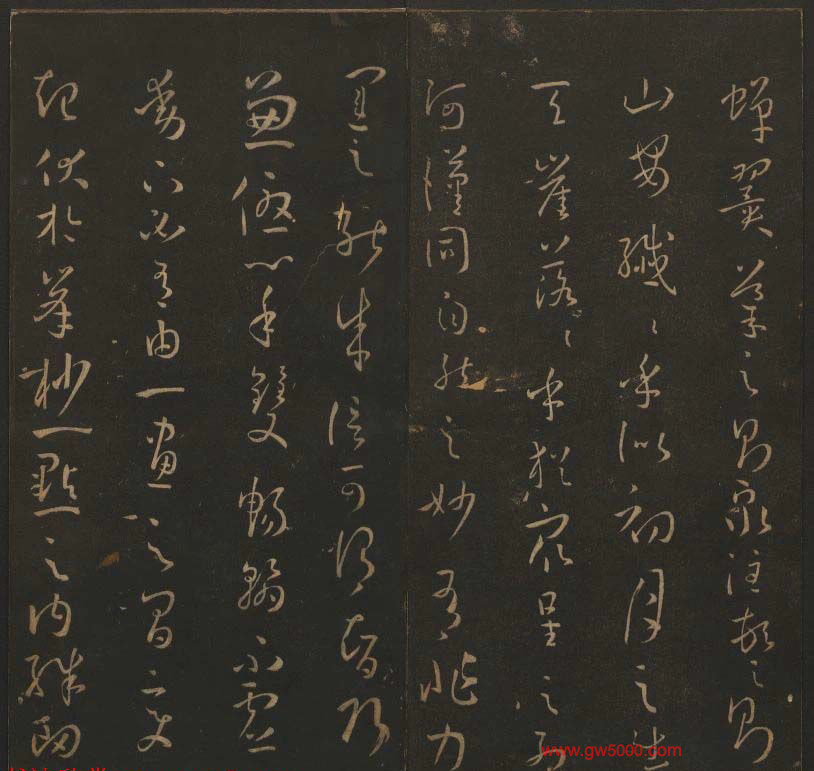 蟬翼導之則泉注頓之則
山安纖〻乎似初月之出
天崖落〻乎猶衆星之列
河漢同自然之妙有非力
運之能成信可謂智巧
兼優心手雙暢翰不虛
動下必有由一畫之間變
起伏於峯杪一點之内殊衄
www.gw5000.com